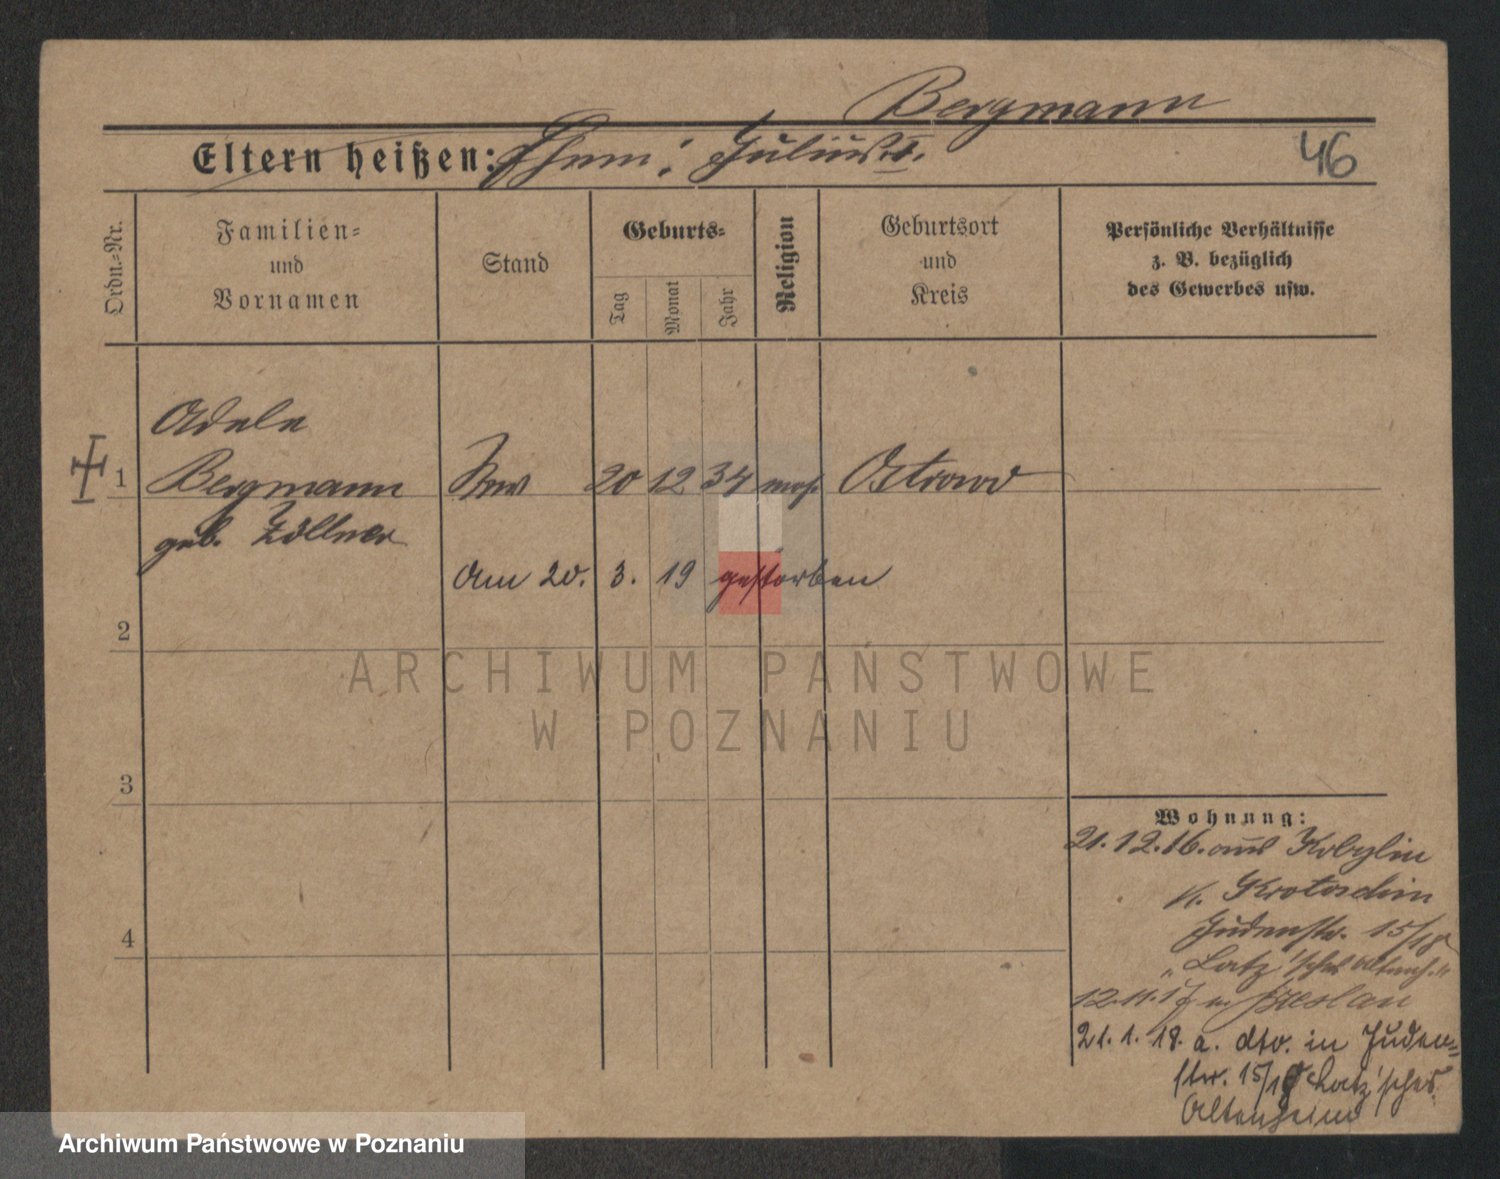 Bergmann
Eltern heißen: Ehem: Julius †. 46
Ordn.=Nr.
Familien=
und
Vornamen
Stand
Geburts=
Tag
Monat
Jahr
Religion
Geburtsort
und
Kreis
Persönliche Verhältnisse
z. B. bezüglich
des Gewerbes usw.
Adele
1 Bergmann Ww 20 12 34 mos. Ostrowo
geb. Zöllner
Am 20. 3. 19 gestorben
2
ARCHIWUM PAŃSTWOWE
W POZNANIU
3
4
Wohnung:
21.12.16. aus Kobylin
K. Krotoschin
Judenstr. 15/18
"Latz'sches Altenh."
12.11.17 n. Breslau
21. 1. 18. a. dto. in Juden=
str. 15/18 Latz'sches
Altenheim
Archiwum Państwowe w Poznaniu